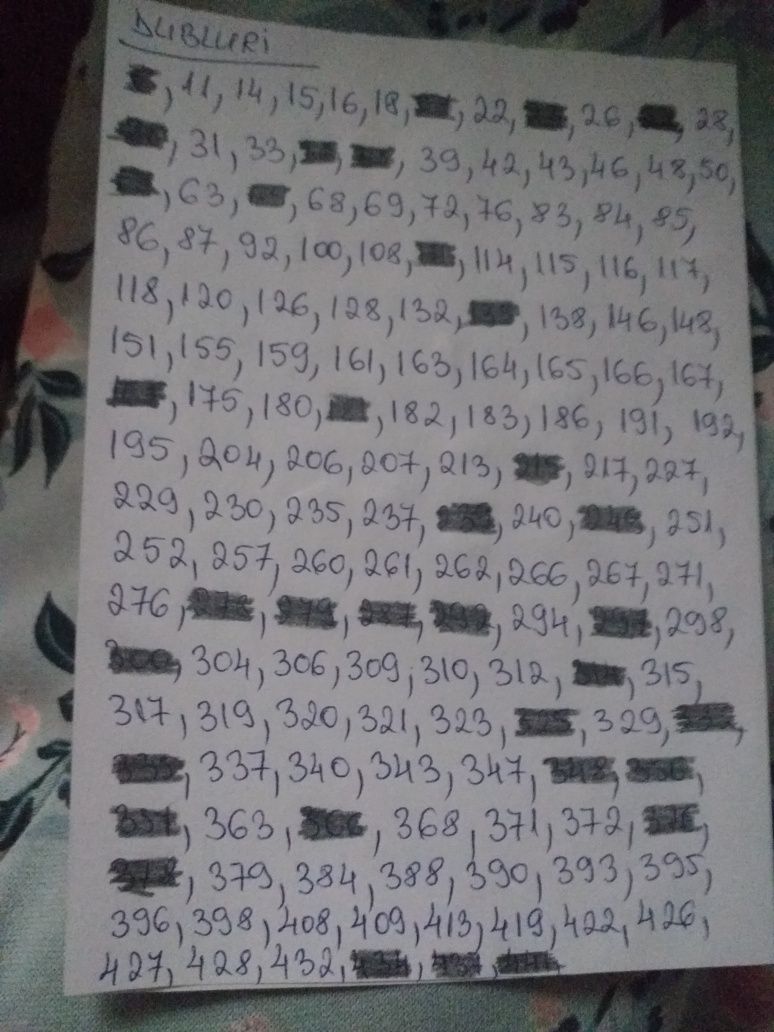 DUBLURI
11, 14, 15, 16, 18, 22, 26, 28,
31, 33, 39, 42, 43, 46, 48, 50,
63, 68, 69, 72, 76, 83, 84, 85,
86, 87, 92, 100, 108, 114, 115, 116, 117,
118, 120, 126, 128, 132, 138, 146, 148,
151, 155, 159, 161, 163, 164, 165, 166, 167,
175, 180, 182, 183, 186, 191, 192,
195, 204, 206, 207, 213, 215, 217, 227,
229, 230, 235, 237, 240, 251,
252, 257, 260, 261, 262, 266, 267, 271,
276, 279, 287, 292, 294, 297, 298,
300, 304, 306, 309, 310, 312, 315,
317, 319, 320, 321, 323, 325, 329,
337, 340, 343, 347, 348, 356,
357, 363, 366, 368, 371, 372, 376,
379, 384, 388, 390, 393, 395,
396, 398, 408, 409, 413, 419, 422, 426,
427, 428, 432, 434, 437, 441